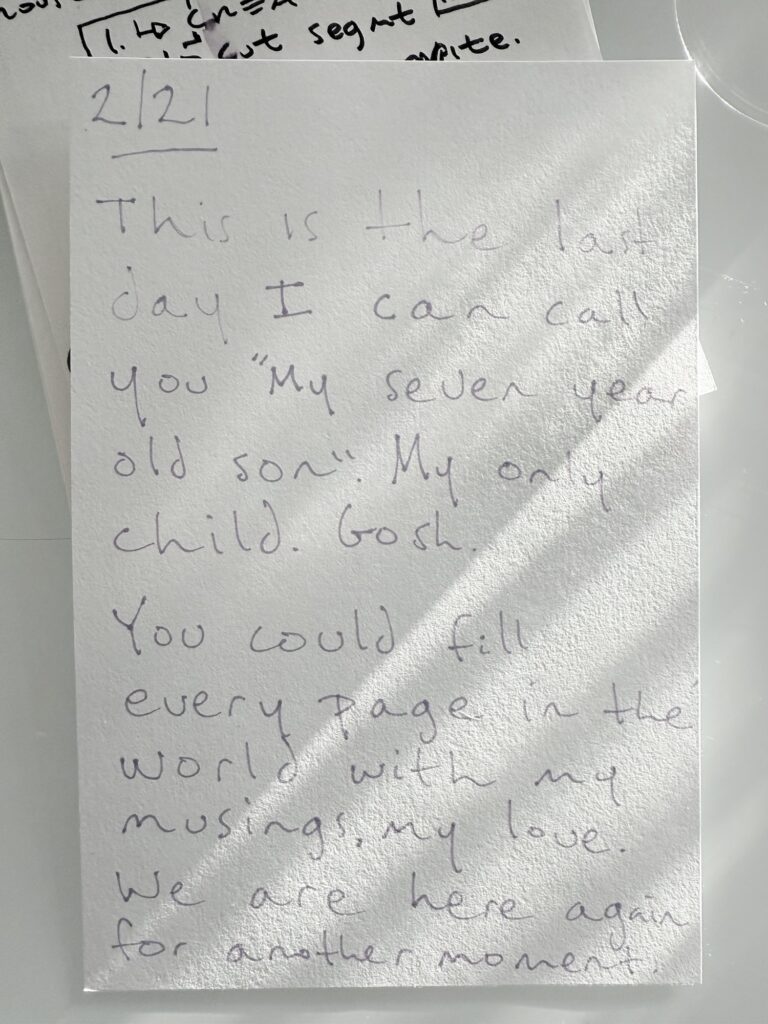 cut segmt
2/21
This is the last
day I can call
you "My seven year
old son". My only
child. Gosh.
You could fill
every page in the
world with my
musings, my love.
We are here again
for another moment.